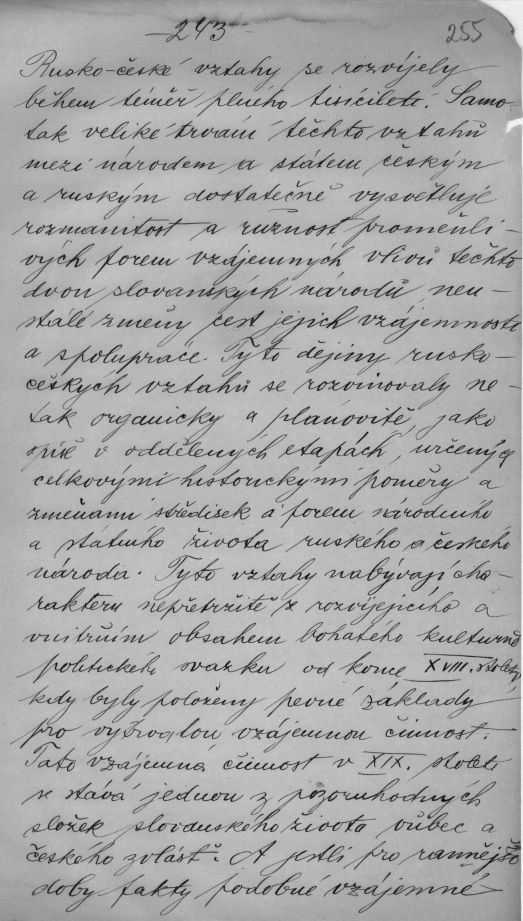 – 243
255
Rusko-české vztahy se rozvíjely
během téměř plného tisíciletí. Samo-
tak veliké trvání těchto vztahů
mezi národem a státem českým
a ruským dostatečně vysvětluje
rozmanitost a různost proměnli-
vých forem vzájemných vlivů těchto
dvou slovanských národů, neu-
stálé změny cest jejich vzájemnosti
a spolupráce. Tyto dějiny rusko-
českých vztahů se rozvinovaly ne-
tak organicky a planovitě, jako
spíše v oddělených etapách, určených
celkovými historickými poměry a
změnami středisek a forem národního
a státního života ruského a českého
národa. Tyto vztahy nabývají cha-
rakteru nepřetržitě z rozvíjejícího a
vnitřním obsahem bohatého kulturně
politického svazku od konce XVIII. století,
kdy byly položeny pevné základy
pro vytrvalou vzájemnou činnost.
Tato vzájemná činnost v XIX. století
se stává jednou z pozoruhodných
složek slovanského života vůbec a
českého zvlášť. A jestli pro rannější
doby fakty podobné vzájemné